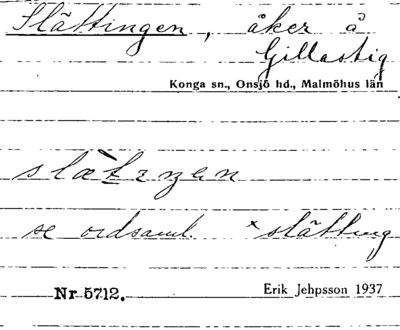 Slättingen, åker å
Gillastig
Konga sn., Onsjö hd., Malmöhus län
se ordsaml. ×slätting
Nr 5712.
Erik Jehpsson 1937